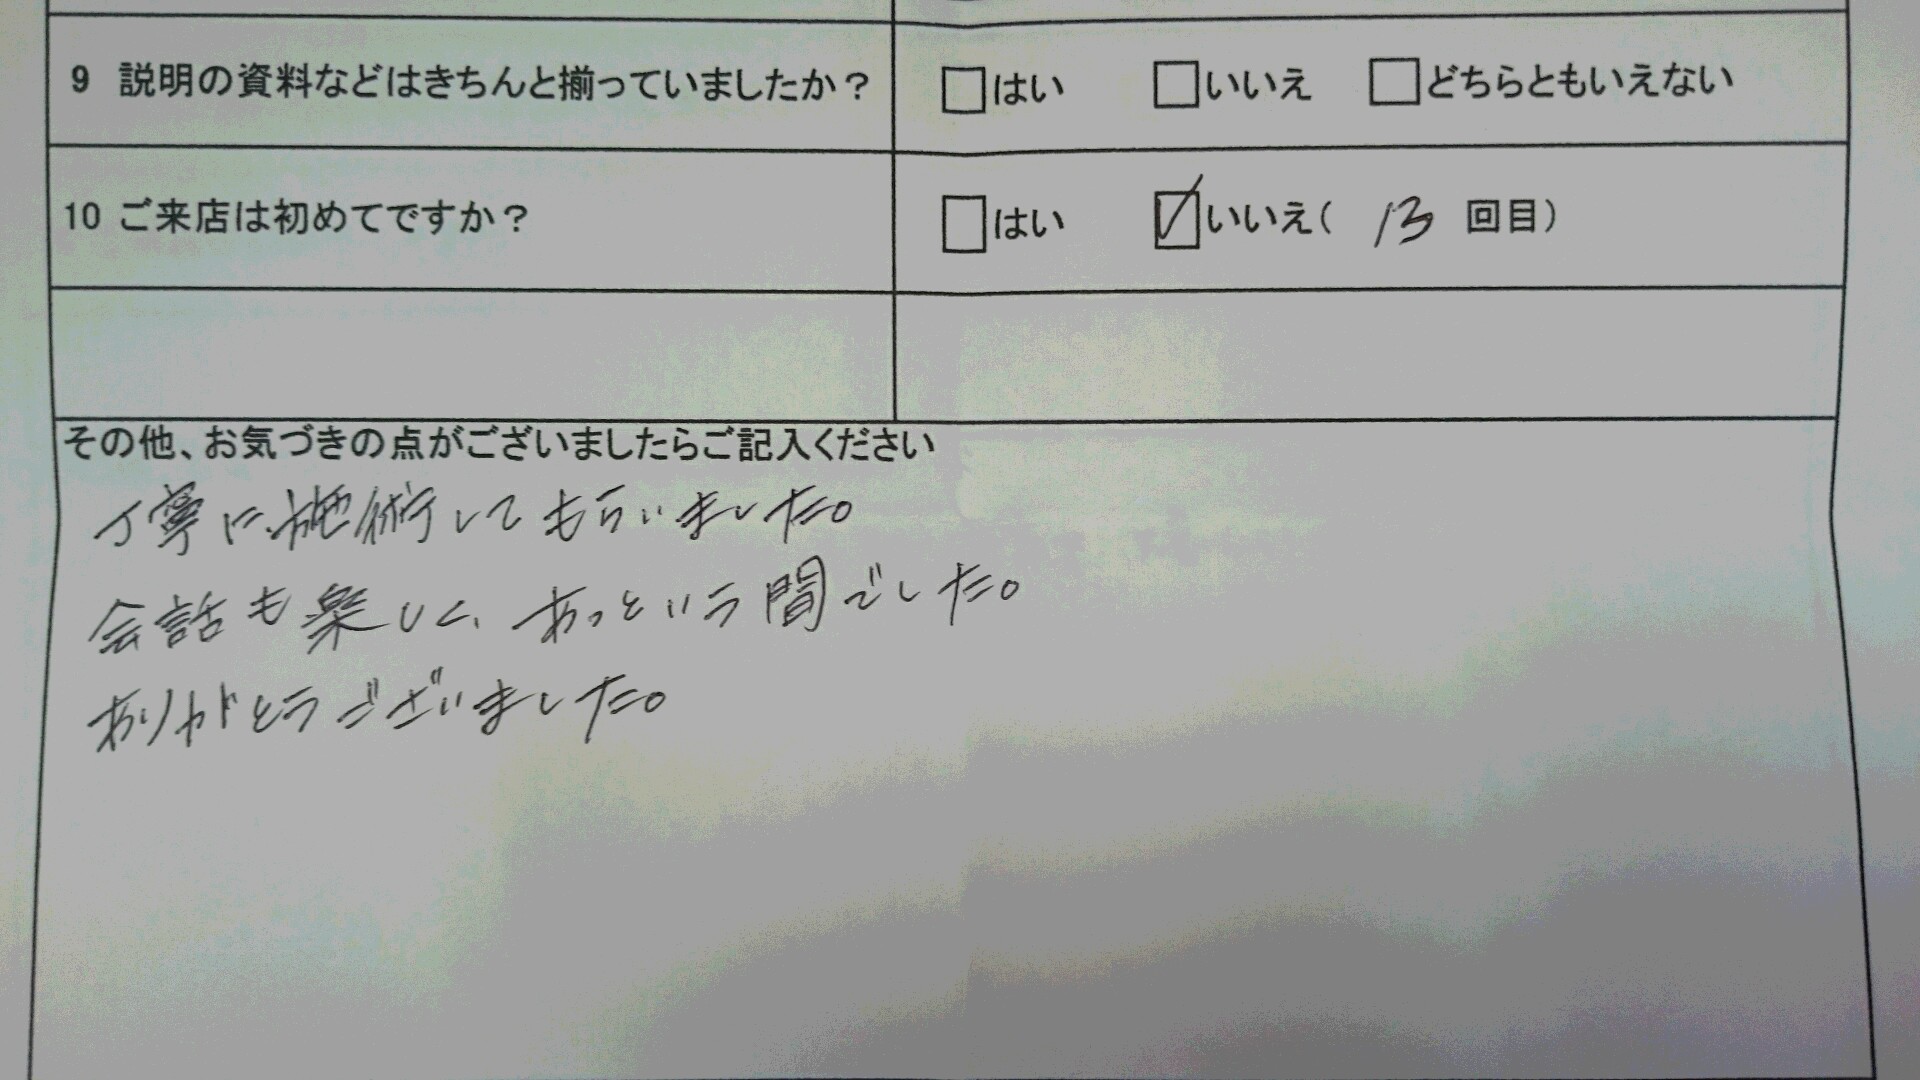 9 説明の資料などはきちんと揃っていましたか？ □はい □いいえ □どちらともいえない
10 ご来店は初めてですか？ □はい ☑いいえ( 13 回目)
その他、お気づきの点がございましたらご記入ください
丁寧に施術してもらいました。
会話も楽しく、あっという間でした。
ありがとうございました。